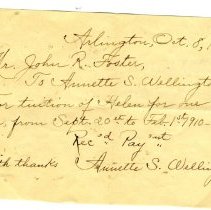 Arlington, Oct. 8, 1
Mr. John R. Foster,
To Annette S. Wellingt
For tuition of Helen for one
, from Sept. 20th to Feb. 1st 1910-
Rec'd Pay'nt
th thanks Annette S. Welling